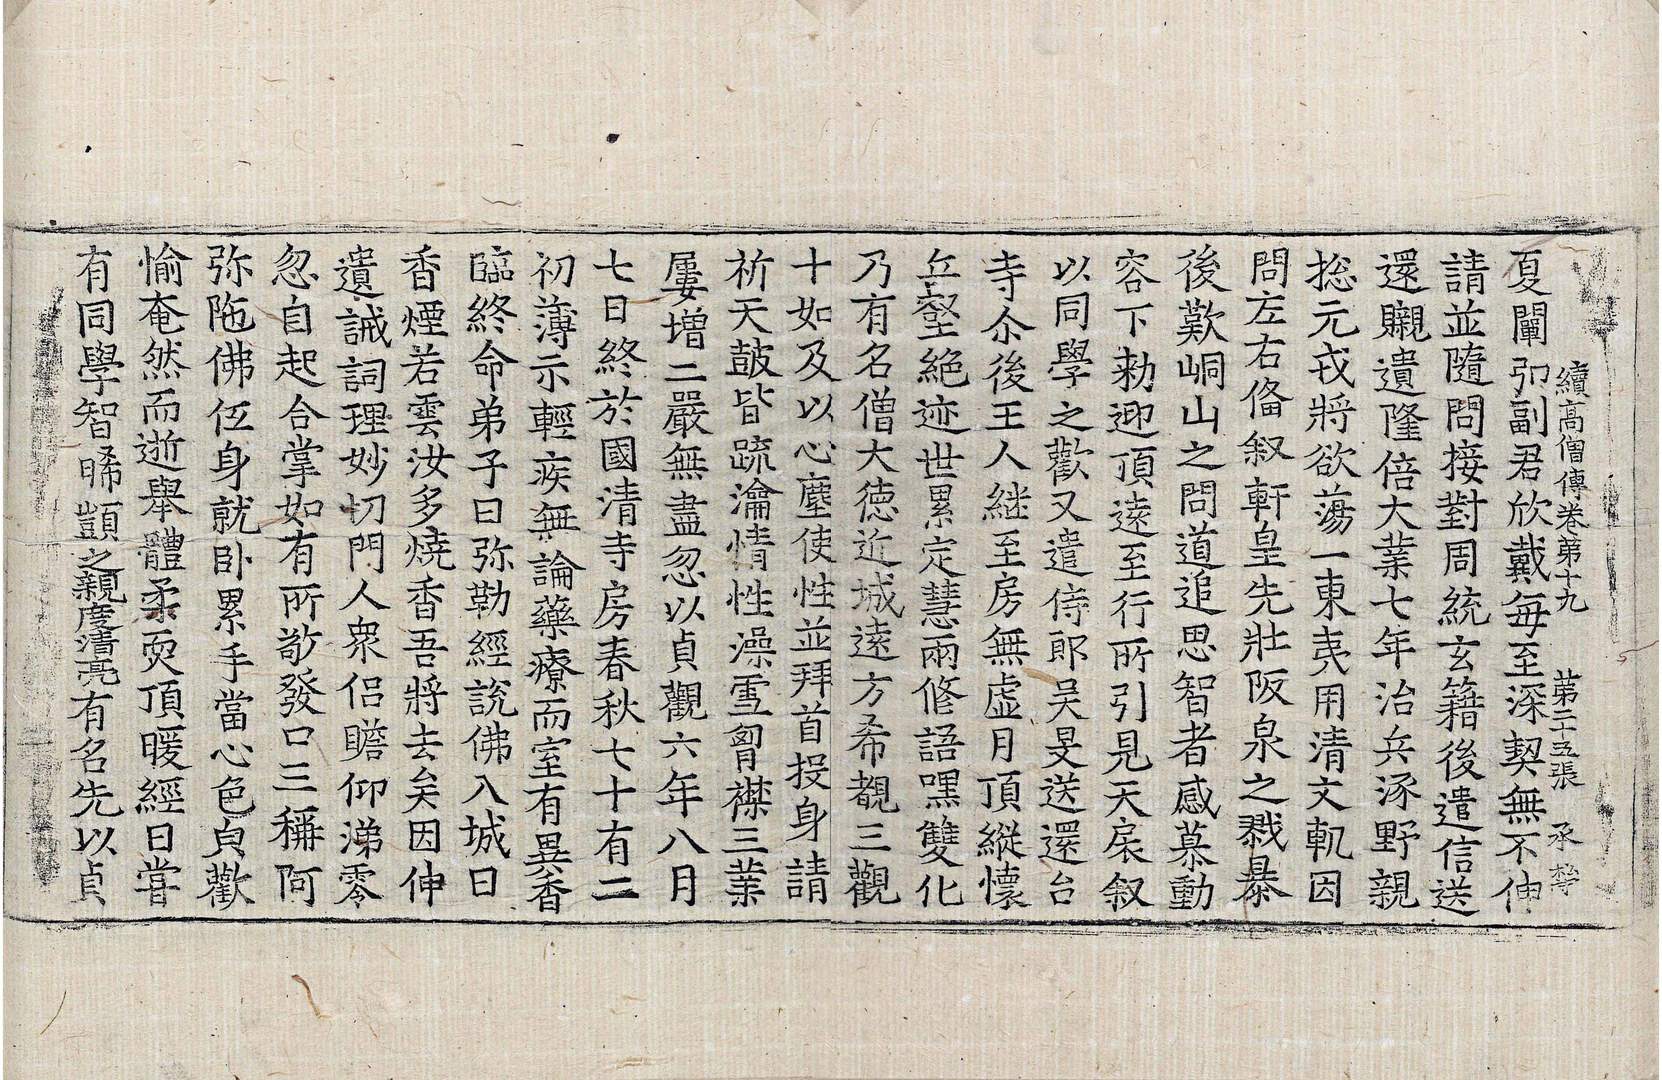 續高僧傳卷第十九 第二十五張 承
夏闡卯副君欣戴每至深契無不伸
請並隨問接對周統玄籍後遣信送
還贐遺隆倍大業七年治兵涿野親
捴元戎將欲蕩一東夷用清文軌因
問左右俻叙軒皇先壯阪泉之戮暴
後歎峒山之問道追思智者感慕動
容下勑迎頂逺至行所引見天扆叙
以同學之歡又遣侍郎吴旻送還台
寺尒後王人継至房無虚月頂縱懷
丘壑絶迹世累定慧兩修語嘿雙化
乃有名僧大德近城逺方希覩三觀
十如及以心塵使性並拜首投身請
祈天鼓皆疏瀹情性澡雪胷襟三業
屢增二嚴無盡忽以貞觀六年八月
七日終於國清寺房春秋七十有二
初薄示輕疾無論藥療而室有異香
臨終命弟子曰弥勒經說佛入城日
香煙若雲汝多燒香吾將去矣因伸
遺誡詞理妙切門人衆侣瞻仰涕零
忽自起合掌如有所敬發口三稱阿
弥陁佛伍身就卧累手當心色皃歡
愉奄然而逝舉體柔耎頂暖經日甞
有同學智晞顗之親度清亮有名先以貞